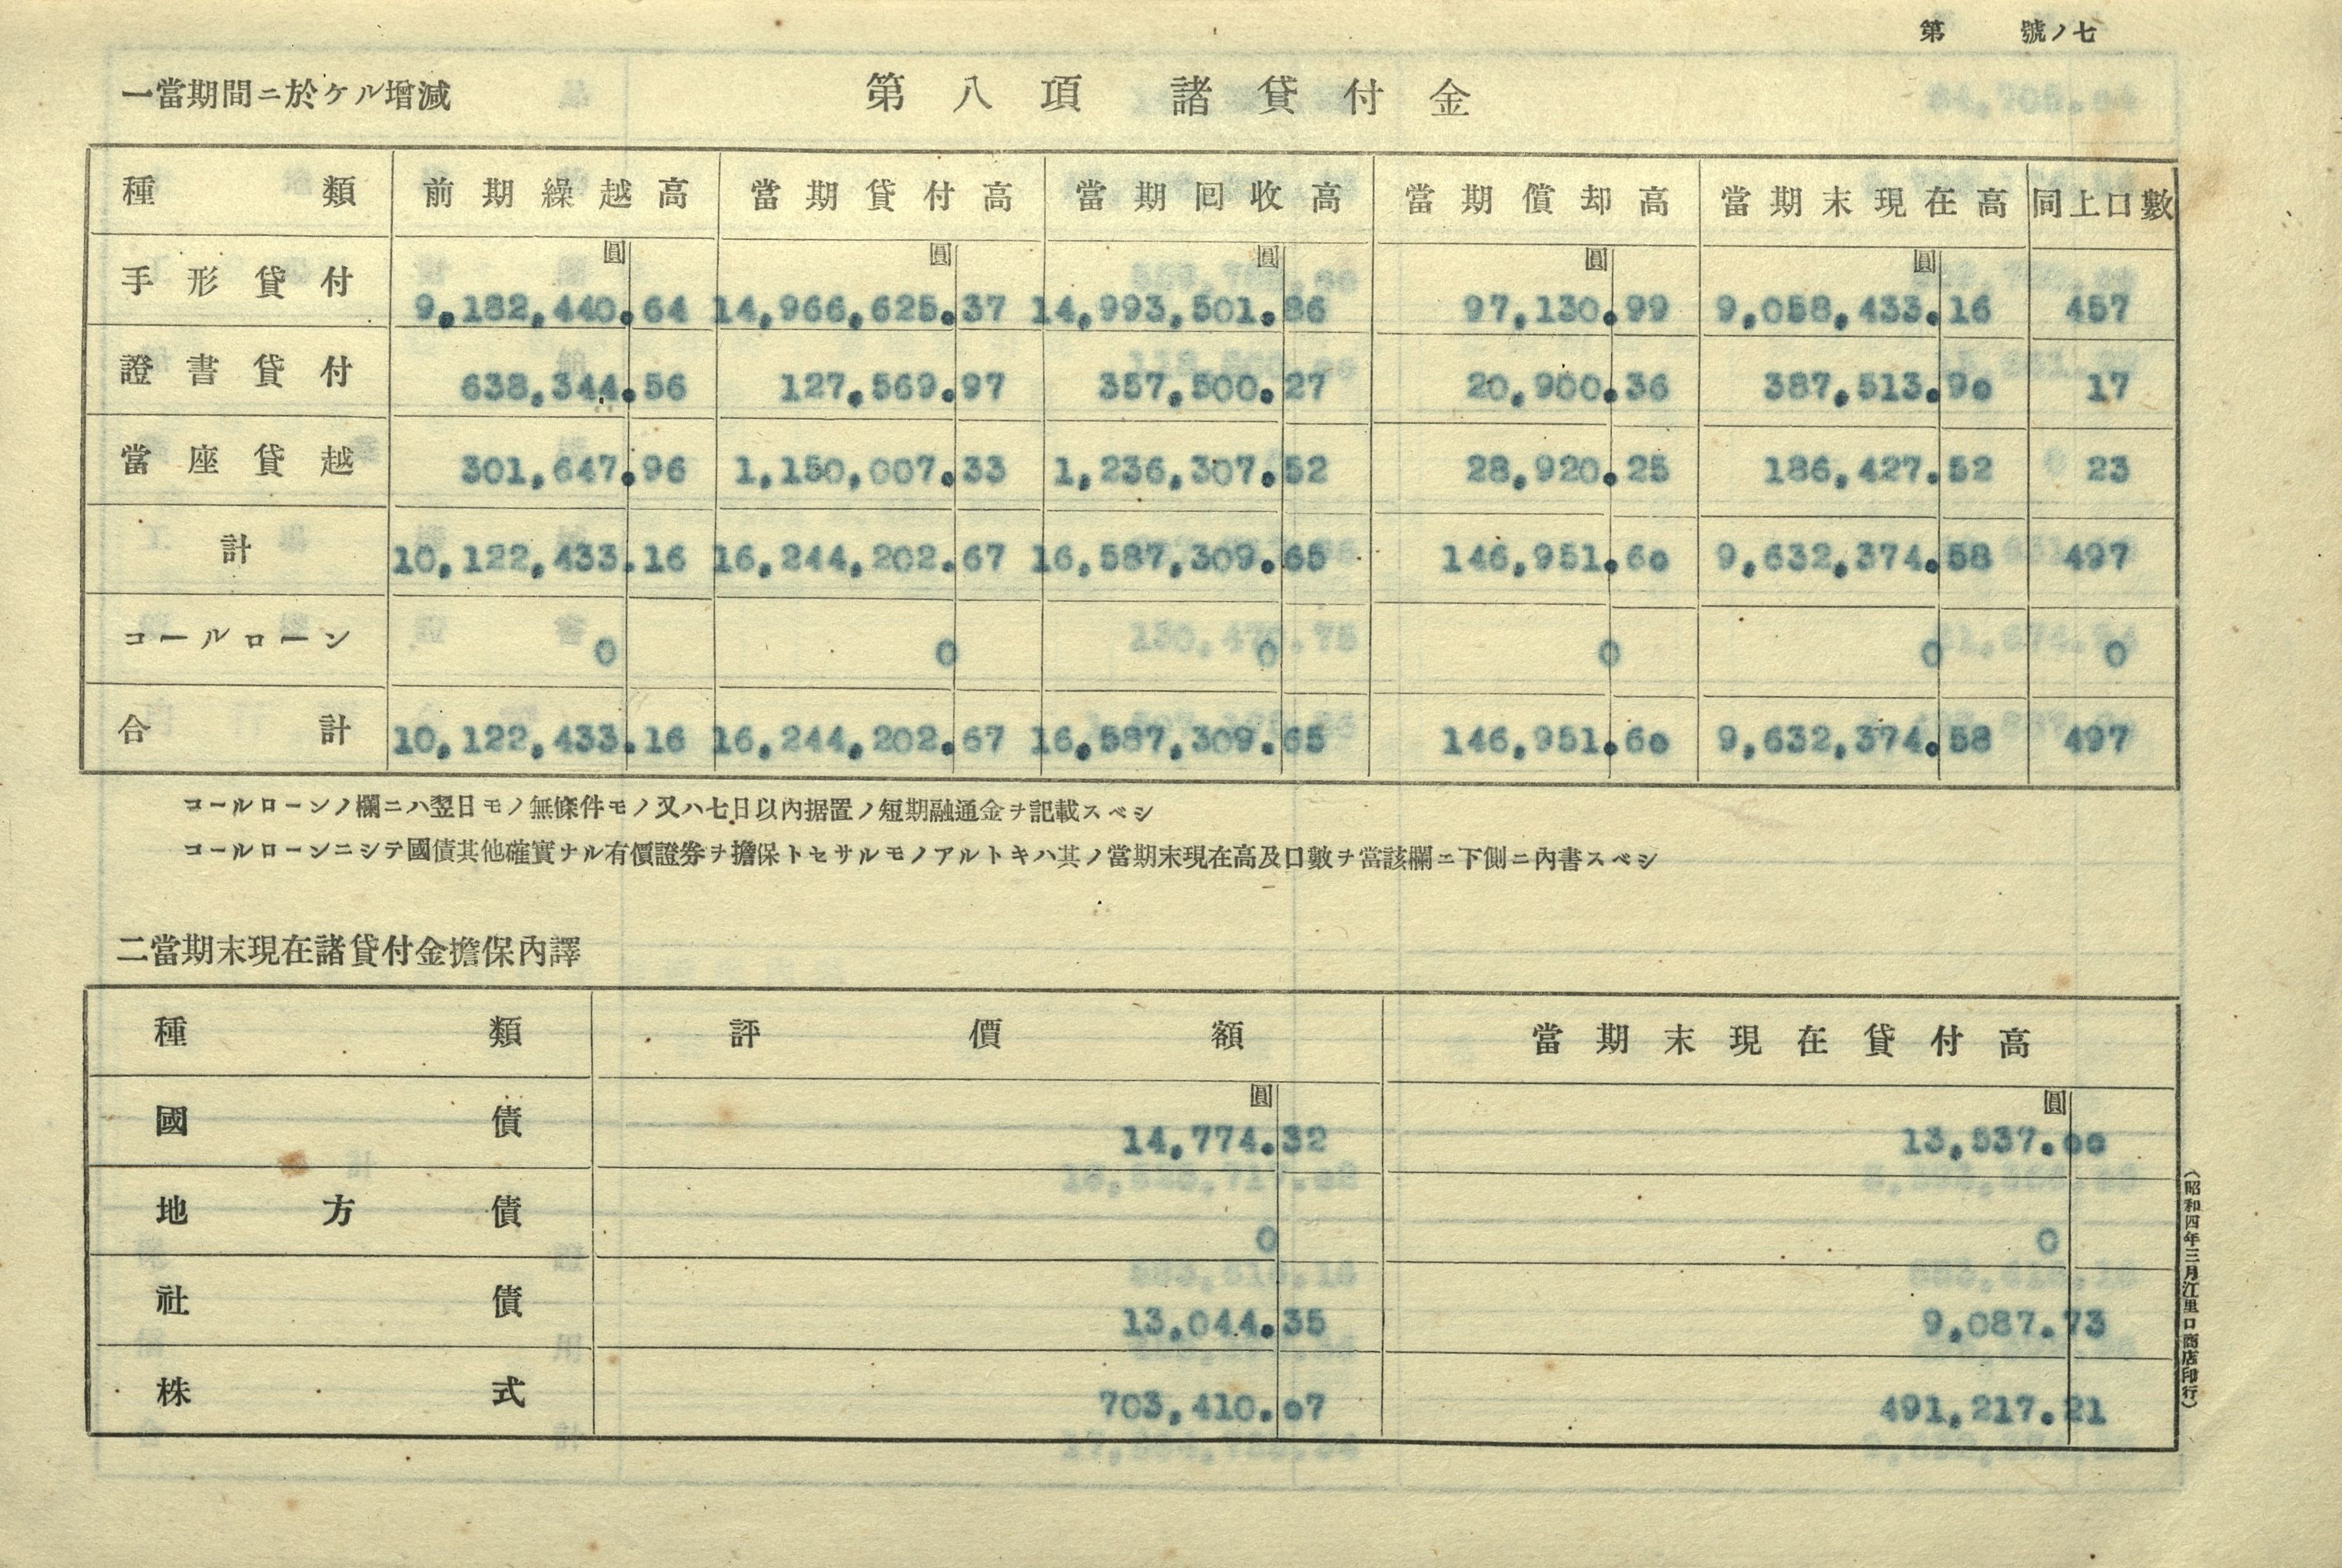 第 號ノ七
一當期間ニ於ケル增減 第八項 諸貸付金
種類 前期繰越高 當期貸付高 當期回收高 當期償却高 當期末現在高 同上口數
圓 圓 圓 圓 圓
手形貸付 9,182,440.64 14,966,625.37 14,993,501.86 97,130.99 9,058,433.16 457
證書貸付 638,344.56 127,569.97 357,500.27 20,900.36 387,513.90 17
當座貸越 301,647.96 1,150,007.33 1,236,307.52 28,920.25 186,427.52 23
計 10,122,433.16 16,244,202.67 16,587,309.65 146,951.60 9,632,374.58 497
コールローン 0 0 0 0 0 0
合計 10,122,433.16 16,244,202.67 16,587,309.65 146,951.60 9,632,374.58 497
コールローンノ欄ニハ翌日モノ無條件モノ又ハ七日以內据置ノ短期融通金ヲ記載スベシ
コールローンニシテ國債其他確實ナル有價證券ヲ擔保トセサルモノアルトキハ其ノ當期末現在高及口數ヲ當該欄ニ下側ニ內書スベシ
二當期末現在諸貸付金擔保內譯
種類 評價額 當期末現在貸付高
圓 圓
國債 14,774.32 13,537.00
地方債 0 0
社債 13,044.35 9,087.73
株式 703,410.07 491,217.21
(昭和四年三月江里口商店印行)